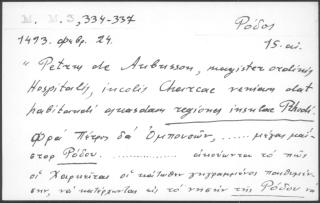 M. M. 3, 334-337 Ρόδος
1493. φεβρ. 24. 15. αι.
" Petrus de Aubusson, magister ordinis
Hospitalis, incolis Charcae veniam dat
habitandi quasdam regiones insulae Rhodi.
Φρα Πέτρος δα Ομπουσών, ...... μέγας μαΐ-
στορ Ρόδου. .............. ακούωντα το πώς
οι Χαρκίται οι κάτωθεν γεγραμμένοι
να κατέρχωνται εις το νησίν της Ρόδου να